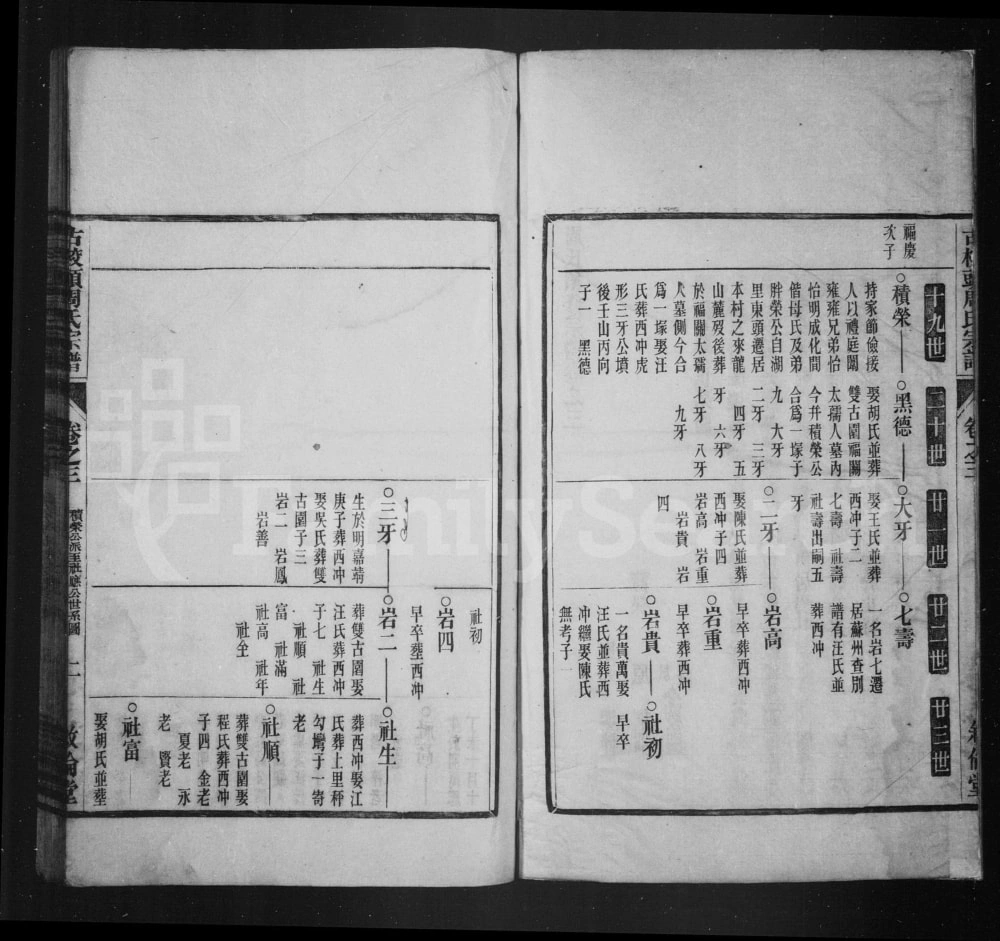 十九世
二十世
廿一世
廿二世
廿三世
福慶
次子
積榮
持家節儉接
人以禮庭闈
雍雍兄弟怡
怡明成化間
偕母氏及弟
胖榮公自湖
里東頭遷居
本村之來龍
山麓歿後葬
於福關太孺
人墓側今合
爲一塚娶汪
氏葬西冲虎
形三牙公墳
後壬山丙向
子一 黑德
黑德
娶胡氏並葬
雙古園福關
太孺人墓內
今幷積榮公
合爲一塚子
九 大牙
二牙 三牙
四牙 五
牙 六牙
七牙 八牙
九牙
大牙
娶王氏並葬
西冲子二
七壽 社壽
社壽出嗣五
牙
七壽
一名岩七遷
居蘇州查別
譜有汪氏並
葬西冲
二牙
娶陳氏並葬
西冲子四
岩高 岩重
岩貴 岩
四
岩高
早卒葬西冲
岩重
早卒葬西冲
岩貴
一名貴萬娶
汪氏並葬西
冲繼娶陳氏
無考子一
社初
早卒
社初
岩四
早卒葬西冲
三牙
生於明嘉靖
庚子葬西冲
娶吳氏葬雙
古園子三
岩二 岩鳳
岩善
岩二
葬雙古園娶
汪氏葬西冲
子七 社生
社順 社
富 社滿
社高 社年
社全
社生
葬西冲娶江
氏葬上里秤
勾塆子一寄
老
社順
葬雙古園娶
程氏葬西冲
子四 金老
夏老 永
老 賢老
社富
娶胡氏並葬
周氏宗譜
卷之三
積榮公派至社應公世系圖
二
敘倫堂